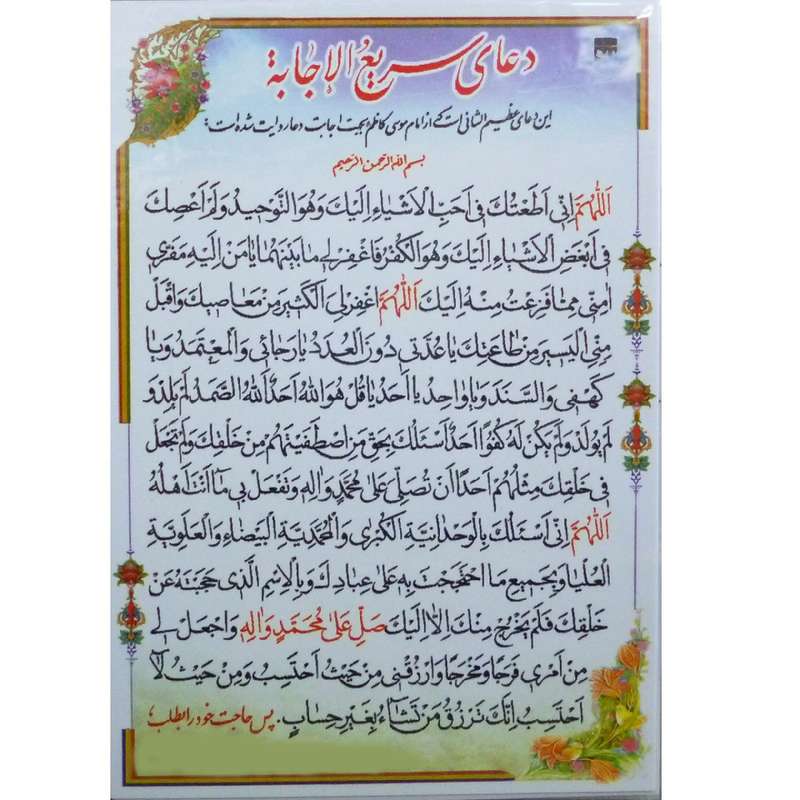 دعای سریع الإجابة
این دعای عظیم الشانی است که از امام موسی کاظم بجهت اجابت دعا روایت شده است:
بسم الله الرحمن الرحیم
اَللّٰهُمَّ اِنّی اَطَعْتُكَ فی اَحَبِّ الْاَشْیاءِ اِلَیْكَ وَهُوَ التَّوْحیدُ وَلَمْ اَعْصِكَ
فی اَبْغَضِ الْاَشْیاءِ اِلَیْكَ وَهُوَ الْكُفْرُ فَاغْفِرْ لی ما بَیْنَهُما یا مَنْ اِلَیْهِ مَفَرّی
امِنّی مِمّا فَزِعْتُ مِنْهُ اِلَیْكَ اَللّٰهُمَّ اغْفِرْ لِیَ الْكَثیرَ مِنْ مَعاصیكَ وَاقْبَلْ
مِنِّی الْیَسیرَ مِنْ طاعَتِكَ یا عُدَّتی دُونَ الْعُدَدِ یا رَجائی وَالْمُعْتَمَدُ وَیا
كَهْفی وَالسَّنَدَ وَیا واحِدُ یا اَحَدُ یا قُلْ هُوَ اللّٰهُ اَحَدٌ اَللّٰهُ الصَّمَدُ لَمْ یَلِدْ وَ
لَمْ یُولَدْ وَلَمْ یَكُنْ لَهُ كُفُوًا اَحَدٌ اَسْئَلُكَ بِحَقِّ مَنِ اصْطَفَیْتَهُمْ مِنْ خَلْقِكَ وَلَمْ تَجْعَلْ
فی خَلْقِكَ مِثْلَهُمْ اَحَدًا اَنْ تُصَلِّیَ عَلیٰ مُحَمَّدٍ وَالِهِ وَتَفْعَلَ بی ما اَنْتَ اَهْلُهُ
اَللّٰهُمَّ اِنّی اَسْئَلُكَ بِالْوَحْدانِیَّةِ الْكُبْریٰ وَالْمُحَمَّدِیَّةِ الْبَیْضاءِ وَالْعَلَوِیَّةِ
الْعُلْیا وَبِجَمیعِ مَا احْتَجَجْتَ بِهِ عَلیٰ عِبادِكَ وَبِالْاِسْمِ الَّذی حَجَبْتَهُ عَنْ
خَلْقِكَ فَلَمْ یَخْرُجْ مِنْكَ اِلّا اِلَیْكَ صَلِّ عَلیٰ مُحَمَّدٍ وَالِهِ وَاجْعَلْ لی
مِنْ اَمْری فَرَجًا وَمَخْرَجًا وَارْزُقْنی مِنْ حَیْثُ اَحْتَسِبُ وَمِنْ حَیْثُ لا
اَحْتَسِبُ اِنَّكَ تَرْزُقُ مَنْ تَشاءُ بِغَیْرِ حِسابٍ. پس حاجت خود را بطلب؛